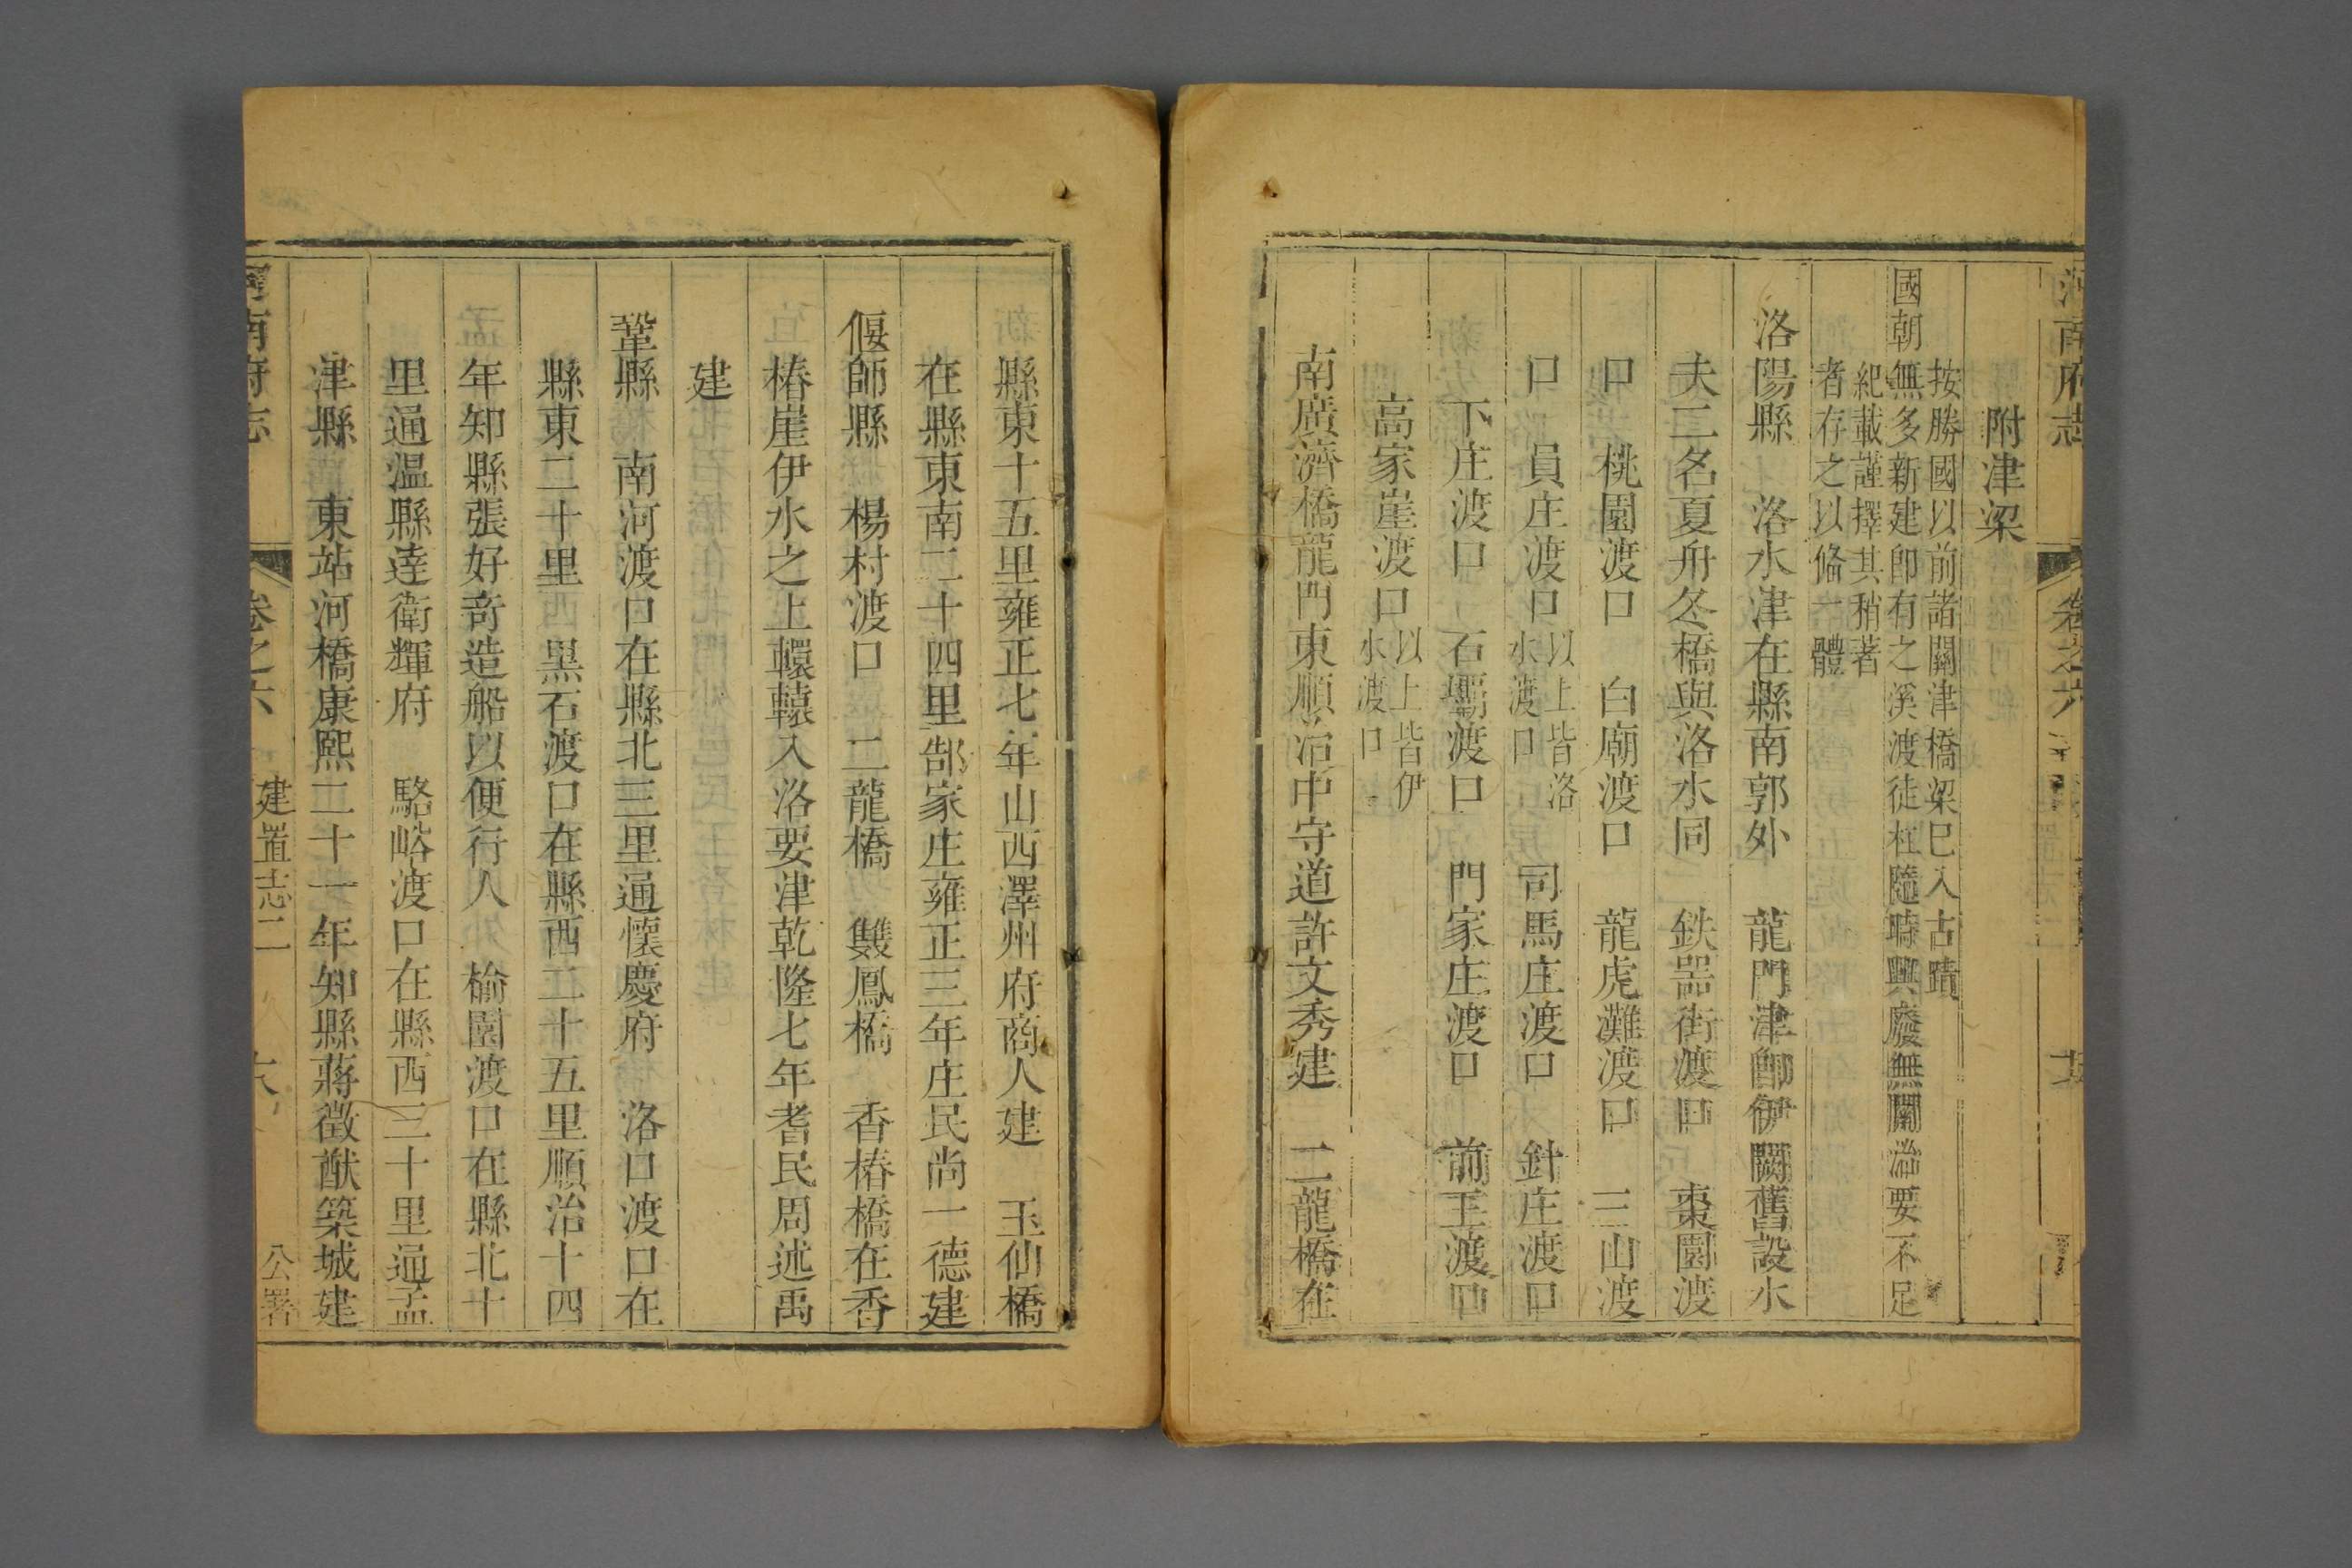 附津梁
按勝國以前諸關津橋梁已入古蹟
國朝無多新建卽有之溪渡徒杠隨時興廢無關治要不足
紀載謹擇其稍著
者存之以俻一體
洛陽縣 洛水津在縣南郭外 龍門津卽伊闕舊設水
夫二名夏舟冬橋與洛水同 鉄器街渡口 棗園渡
口 桃園渡口 白廟渡口 龍虎灘渡口 三山渡
口 員庄渡口 以上皆洛水渡口 司馬庄渡口 針庄渡口
下庄渡口 石壩渡口 門家庄渡口 前王渡口
高家崖渡口 以上皆伊水渡口
南廣濟橋龍門東順治中守道許文秀建 二龍橋在
縣東十五里雍正七年山西澤州府商人建 玉仙橋
在縣東南二十四里郜家庄雍正三年庄民尚一德建
偃師縣 楊村渡口 二龍橋 雙鳳橋 香椿橋在香
椿崖伊水之上轘轅入洛要津乾隆七年耆民周述禹
建
鞏縣 南河渡口在縣北三里通懷慶府 洛口渡口在
縣東二十里 黒石渡口在縣西二十五里順治十四
年知縣張好奇造船以便行人 榆園渡口在縣北十
里通温縣達衛輝府 駱峪渡口在縣西三十里通孟
津縣 東站河橋康熙二十一年知縣蔣徵猷築城建
河南府志 卷之六 建置志二 公署